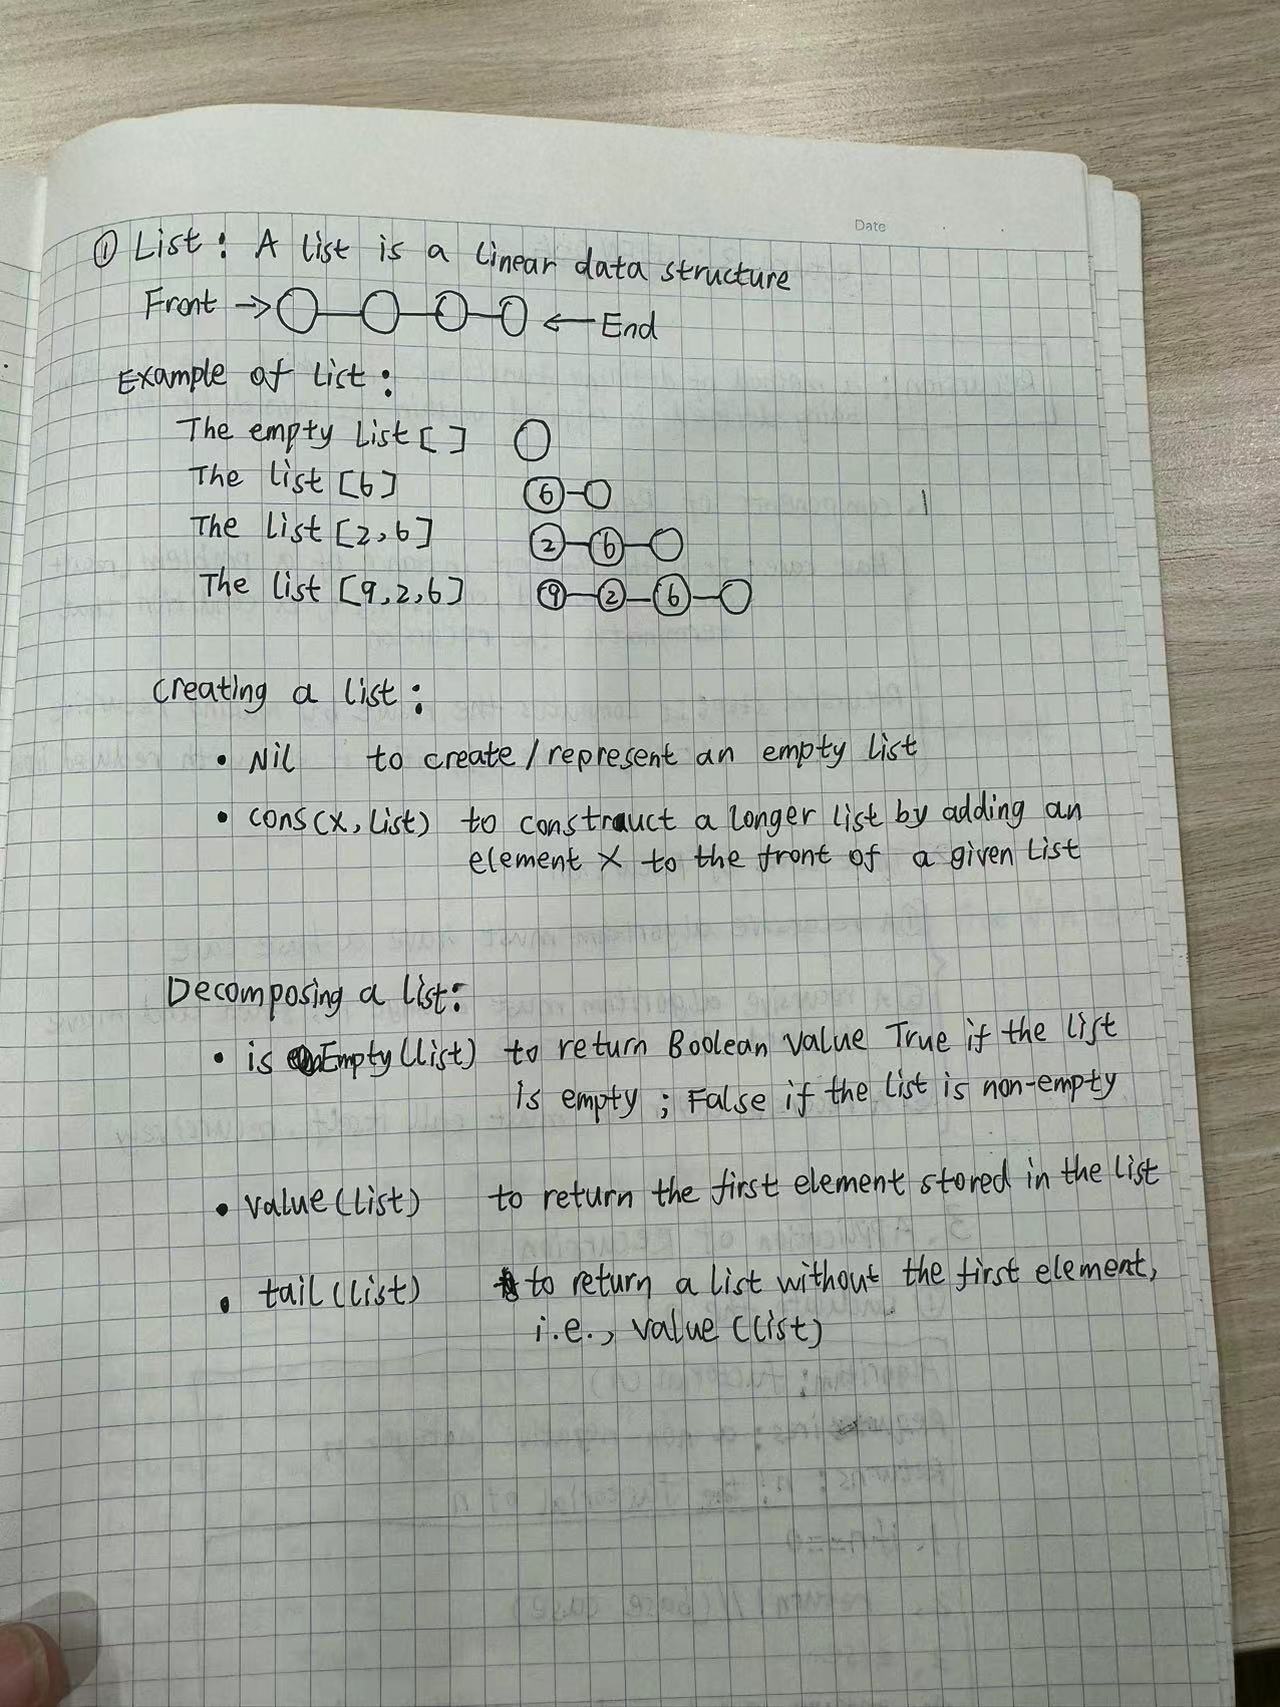 Date
① List: A list is a linear data structure
Front → ← End
Example of list:
The empty list [ ]
The list [6] 6
The list [2,6] 2 6
The list [9,2,6] 9 2 6
Creating a list:
• Nil to create / represent an empty list
• cons(x, list) to construct a longer list by adding an
element x to the front of a given list
Decomposing a list:
• isEmpty(list) to return Boolean value True if the list
is empty; False if the list is non-empty
• value(list) to return the first element stored in the list
• tail(list) to return a list without the first element,
i.e., value(list)